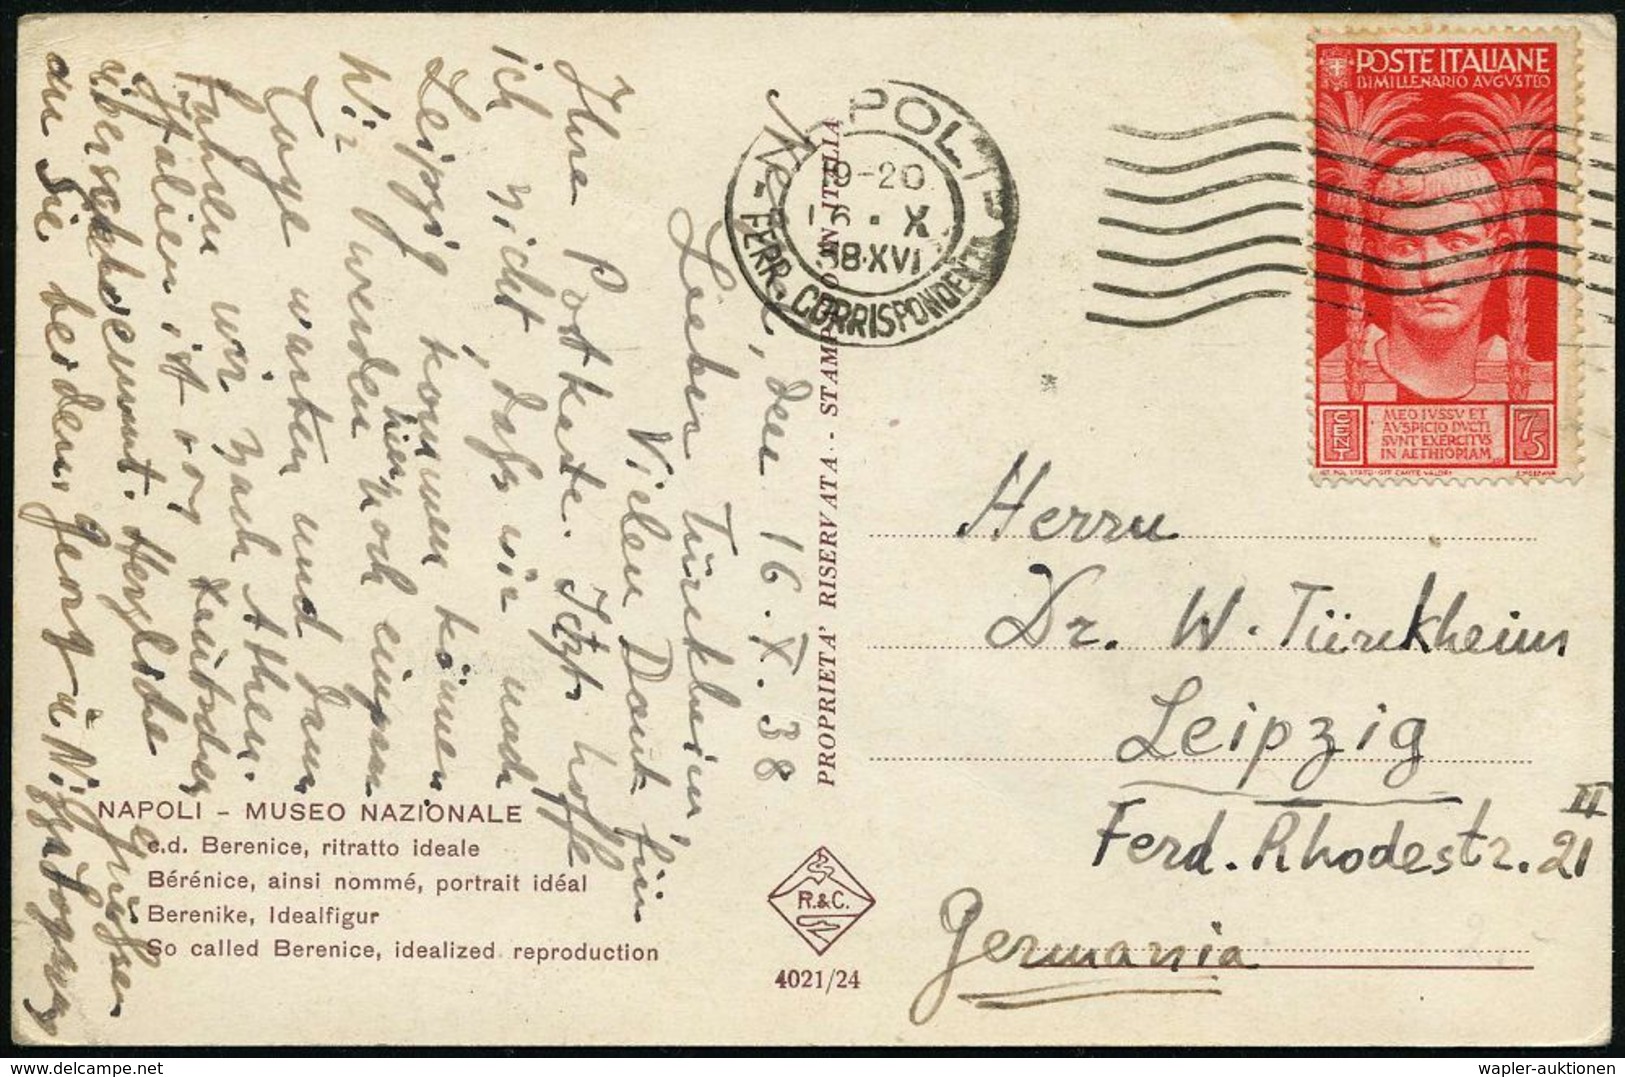 Neapel, den 16.X.38
Lieber Türckheim,
Vielen Dank für
Ihre Postkarte. Jetzt hoffe
ich nicht, dass wir nach
Leipzig kommen können
Wir werden hier noch einige
Tage warten und dann
fahren wir nach Athen.
Italien ist von Deutschen
überschwemmt. Herzliche Grüsse
an Sie beiden Georg u.
NAPOLI - MUSEO NAZIONALE
c.d. Berenice, ritratto ideale
Bérénice, ainsi nommé, portrait idéal
Berenike, Idealfigur
So called Berenice, idealized reproduction
PROPRIETA' RISERVATA - STAMPATO IN ITALIA
R.&C.
4021/24
NAPOLI
19-20
X
38·XVI
FERR. CORRISPONDENZE
POSTE ITALIANE
BIMILLENARIO AVGVSTEO
CENT 75
MEO IVSSV ET
AVSPICIO DVCTI
SVNT EXERCITVS
IN AETHIOPIAM
Herrn
Dr. W. Türckheim
Leipzig
II
Ferd. Rhodestr. 21
Germania
www.wapler.de
wapler-auktionen